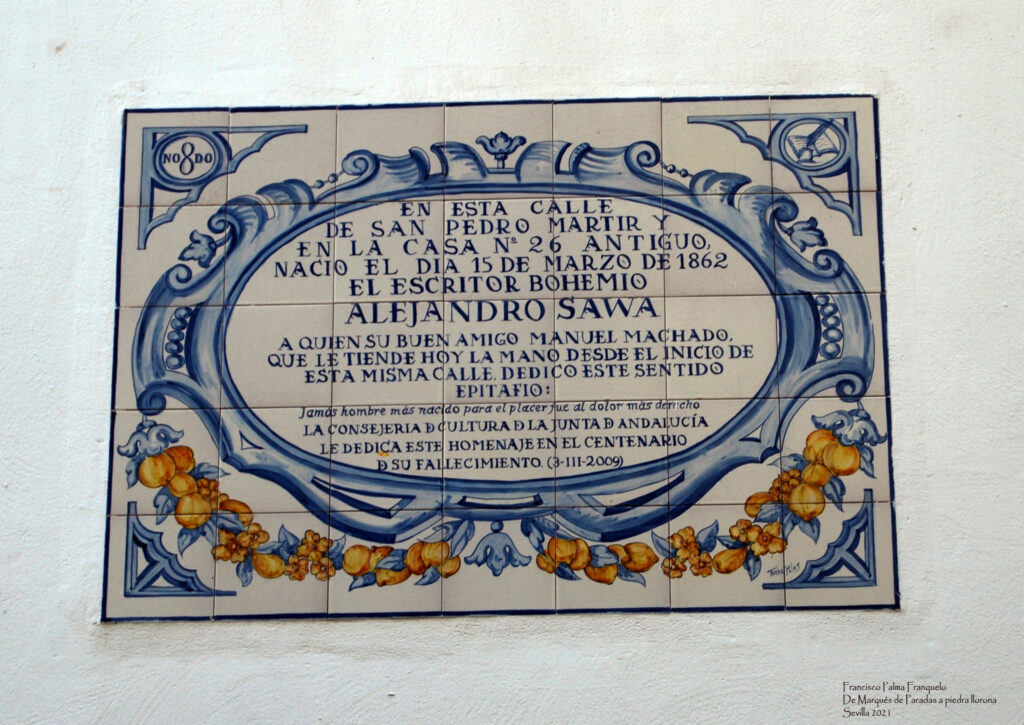 NO8DO
EN ESTA CALLE
DE SAN PEDRO MARTIR Y
EN LA CASA Nº 26 ANTIGUO,
NACIO EL DIA 15 DE MARZO DE 1862
EL ESCRITOR BOHEMIO
ALEJANDRO SAWA
A QUIEN SU BUEN AMIGO MANUEL MACHADO,
QUE LE TIENDE HOY LA MANO DESDE EL INICIO DE
ESTA MISMA CALLE, DEDICO ESTE SENTIDO
EPITAFIO:
Jamás hombre más nacido para el placer fue al dolor más derecho
LA CONSEJERIA D CULTURA D LA JUNTA D ANDALUCÍA
LE DEDICA ESTE HOMENAJE EN EL CENTENARIO
D SU FALLECIMIENTO. (3-III-2009)
Francisco Palma Franquelo
De Marqués de Paradas a piedra llorona
Sevilla 2021